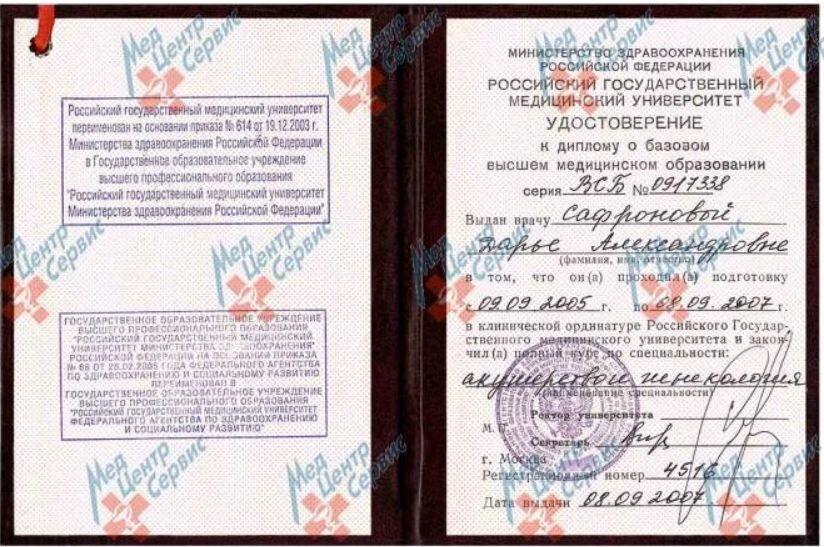 Российский государственный медицинский университет
переименован на основании приказа № 614 от 19.12.2003 г.
Министерства здравоохранения Российской Федерации
в Государственное образовательное учреждение
высшего профессионального образования
"Российский государственный медицинский университет
Министерства здравоохранения Российской Федерации"
ГОСУДАРСТВЕННОЕ ОБРАЗОВАТЕЛЬНОЕ УЧРЕЖДЕНИЕ
ВЫСШЕГО ПРОФЕССИОНАЛЬНОГО ОБРАЗОВАНИЯ
"РОССИЙСКИЙ ГОСУДАРСТВЕННЫЙ МЕДИЦИНСКИЙ
УНИВЕРСИТЕТ МИНИСТЕРСТВА ЗДРАВООХРАНЕНИЯ
РОССИЙСКОЙ ФЕДЕРАЦИИ НА ОСНОВАНИИ ПРИКАЗА
№ 88 ОТ 28.02.2005 ГОДА ФЕДЕРАЛЬНОГО АГЕНТСТВА
ПО ЗДРАВООХРАНЕНИЮ И СОЦИАЛЬНОМУ РАЗВИТИЮ
ПЕРЕИМЕНОВАН В
ГОСУДАРСТВЕННОЕ ОБРАЗОВАТЕЛЬНОЕ УЧРЕЖДЕНИЕ
ВЫСШЕГО ПРОФЕССИОНАЛЬНОГО ОБРАЗОВАНИЯ
"РОССИЙСКИЙ ГОСУДАРСТВЕННЫЙ МЕДИЦИНСКИЙ УНИВЕРСИТЕТ
ФЕДЕРАЛЬНОГО АГЕНТСТВА ПО ЗДРАВООХРАНЕНИЮ
И СОЦИАЛЬНОМУ РАЗВИТИЮ"
МИНИСТЕРСТВО ЗДРАВООХРАНЕНИЯ
РОССИЙСКОЙ ФЕДЕРАЦИИ
РОССИЙСКИЙ ГОСУДАРСТВЕННЫЙ
МЕДИЦИНСКИЙ УНИВЕРСИТЕТ
УДОСТОВЕРЕНИЕ
к диплому о базовом
высшем медицинском образовании
серия ВСБ № 0917338
Выдан врачу Сафроновой
Дарье Александровне
(фамилия, имя, отчество)
в том, что он(а) проходил(а) подготовку
с 09.09.2005 г. по 08.09.2007 г.
в клинической ординатуре Российского Государ-
ственного медицинского университета и закон-
чил(а) полный курс по специальности:
акушерство и гинекология
(наименование специальности)
Ректор университета
М. П.
Секретарь
г. Москва
Регистрационный номер 4516
Дата выдачи 08.09.2007
Мед Центр Сервис